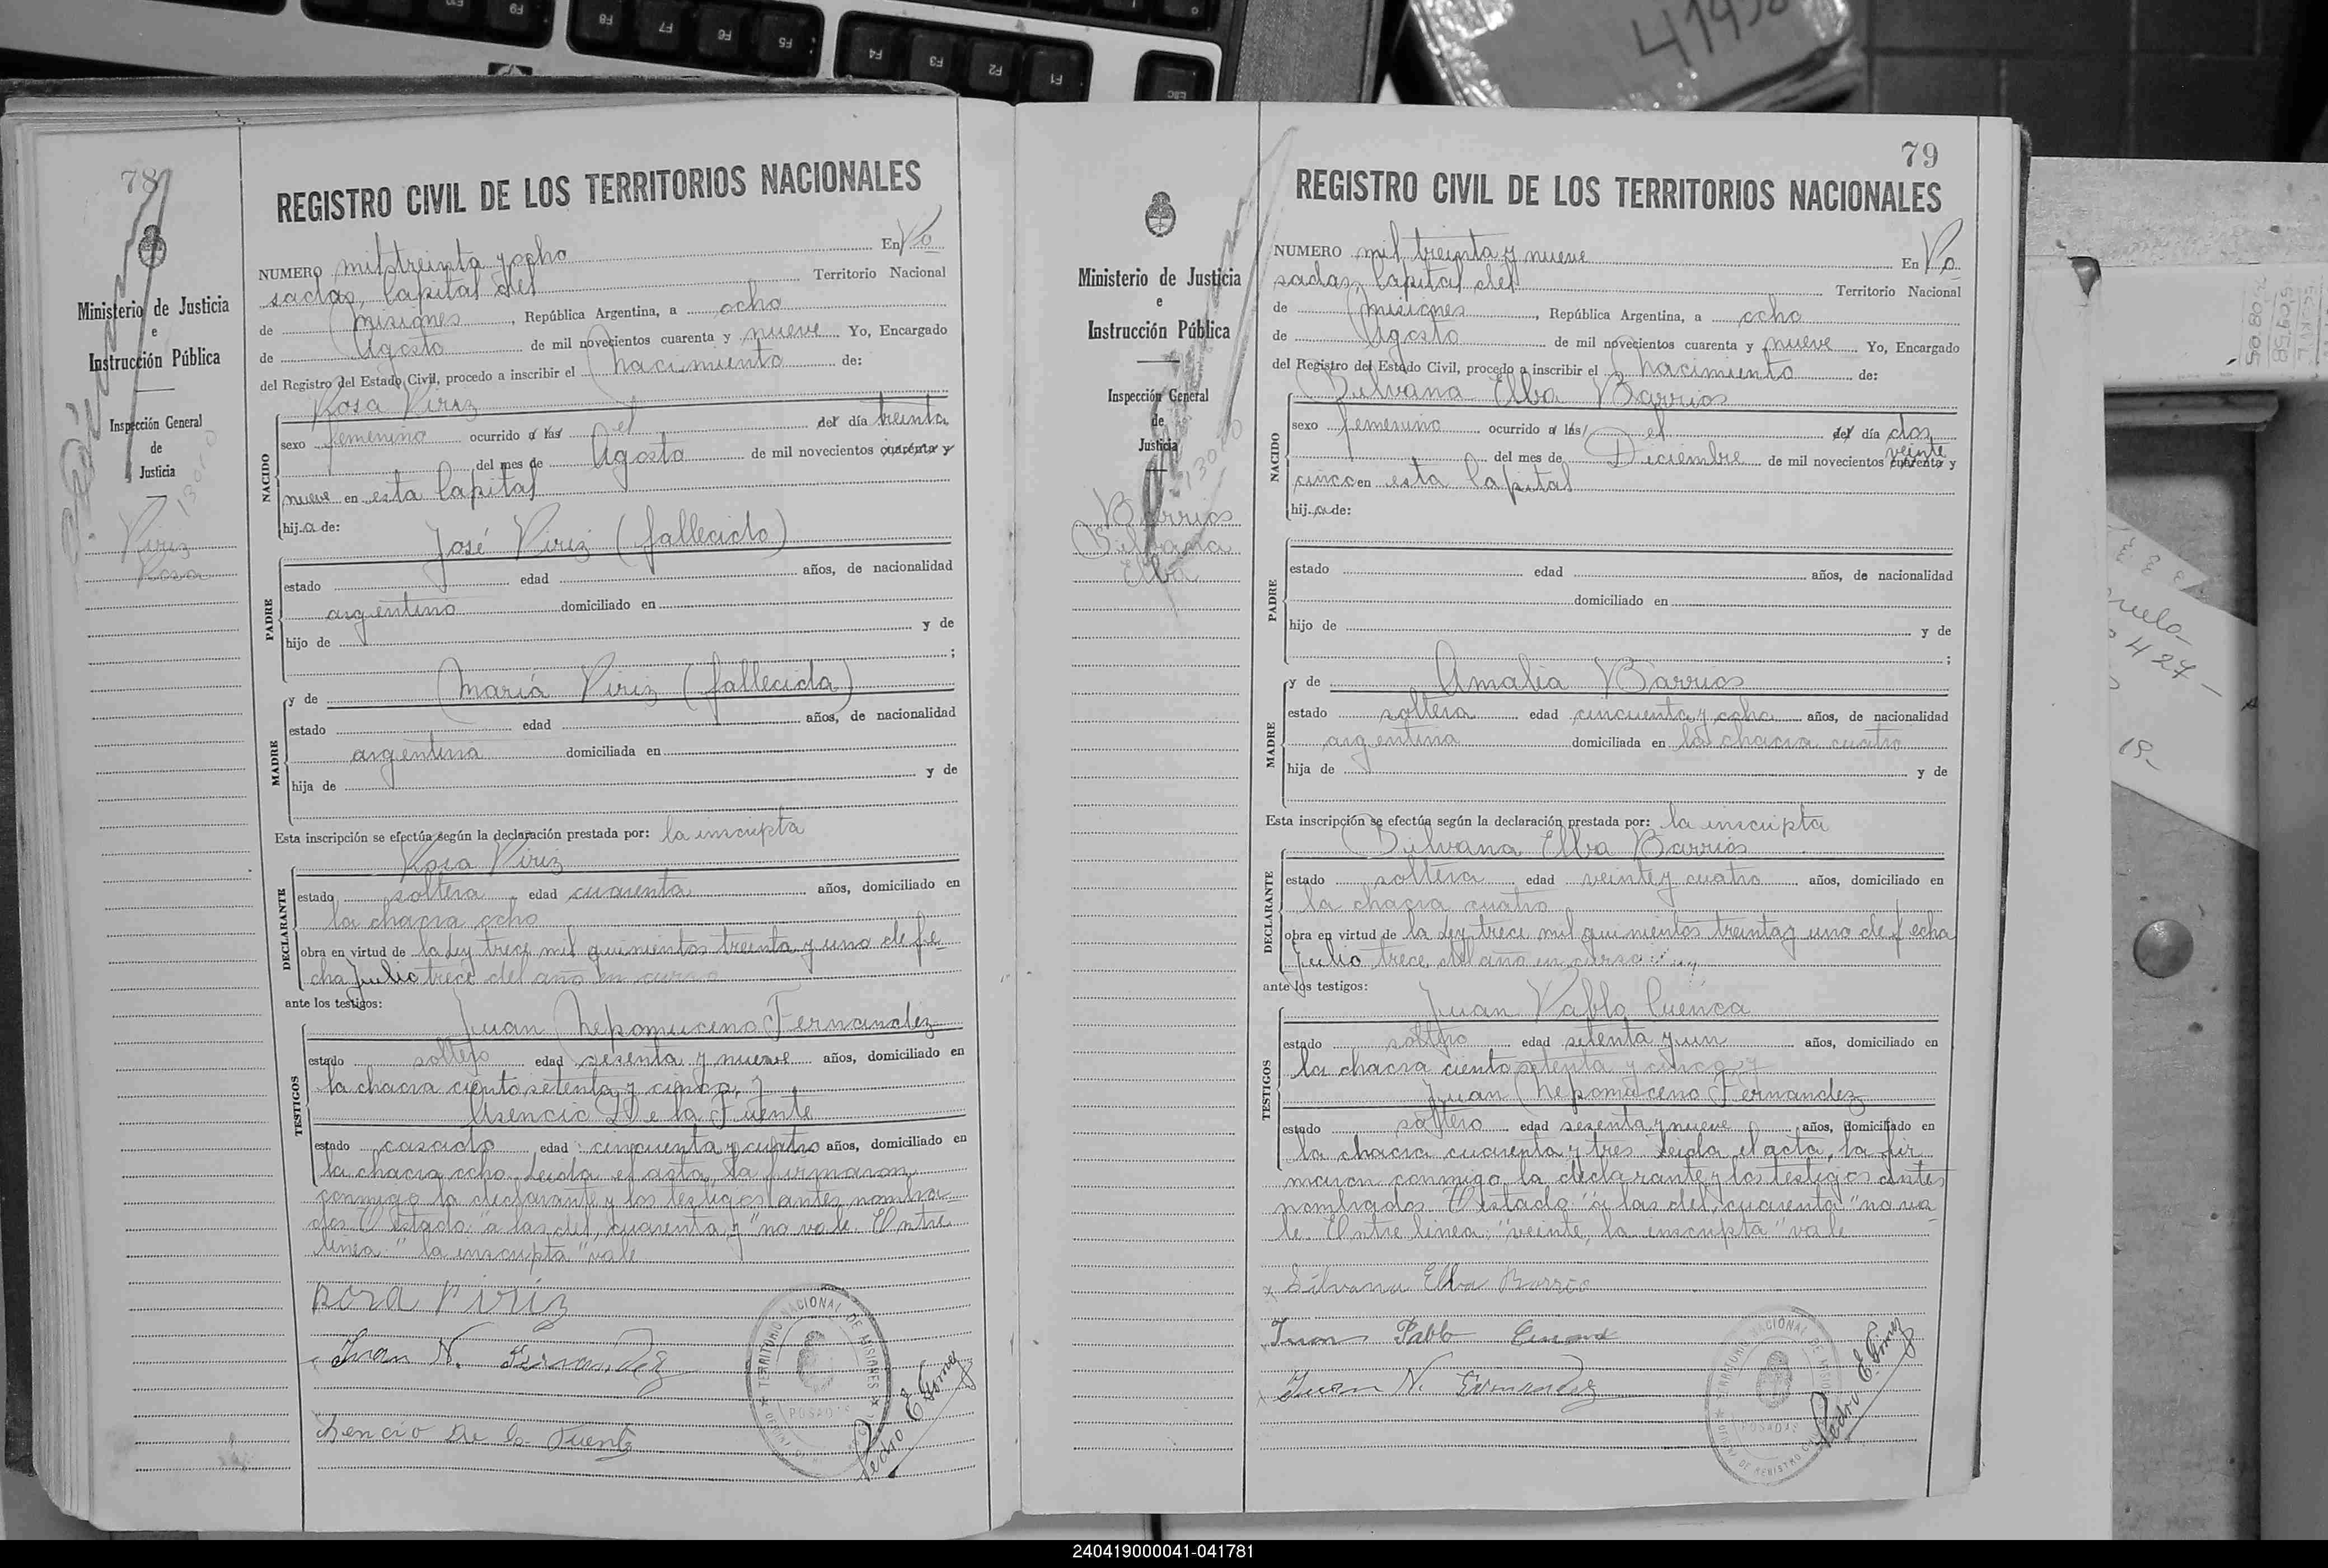 78
Ministerio de Justicia
e
Instrucción Pública
Inspección General
de
Justicia
Piriz
Rosa
REGISTRO CIVIL DE LOS TERRITORIOS NACIONALES
NUMERO mil treinta y ocho En Po
sadas, Capital del Territorio Nacional
de Misiones, República Argentina, a ocho
de Agosto de mil novecientos cuarenta y nueve Yo, Encargado
del Registro del Estado Civil, procedo a inscribir el nacimiento de:
Rosa Piriz
NACIDO
sexo femenino ocurrido a las el del día treinta
del mes de Agosto de mil novecientos cuarenta y
nueve en esta Capital
hija de:
José Piriz (fallecido)
PADRE
estado edad años, de nacionalidad
argentino domiciliado en
hijo de y de
;
y de María Piriz (fallecida)
MADRE
estado edad años, de nacionalidad
argentina domiciliada en
hija de y de
Esta inscripción se efectúa según la declaración prestada por: la inscripta
Rosa Piriz
DECLARANTE
estado soltera edad cuarenta años, domiciliado en
la chacra ocho
obra en virtud de la Ley trece mil quinientos treinta y uno de fe
cha Julio trece del año en curso
ante los testigos:
Juan Nepomuceno Fernandez
TESTIGOS
estado soltero edad sesenta y nueve años, domiciliado en
la chacra ciento setenta y cinco, y
Asencio De la Fuente
estado casado edad cincuenta y cuatro años, domiciliado en
la chacra ocho. Leida el acta, la firmaron
conmigo la declarante y los testigos antes nombra
dos. Testado: "a las del, cuarenta y" no vale. Entre
línea: "la inscripta" vale.
Rosa Piriz
Juan N. Fernandez
Asencio De la Fuente
TERRITORIO NACIONAL DE MISIONES
POSADAS
Pedro E. Gomez
79
Ministerio de Justicia
e
Instrucción Pública
Inspección General
de
Justicia
Barrios
Silvana
Elba
REGISTRO CIVIL DE LOS TERRITORIOS NACIONALES
NUMERO mil treinta y nueve En Po
sadas, Capital del Territorio Nacional
de Misiones, República Argentina, a ocho
de Agosto de mil novecientos cuarenta y nueve Yo, Encargado
del Registro del Estado Civil, procedo a inscribir el nacimiento de:
Silvana Elba Barrios
NACIDO
sexo femenino ocurrido a las el del día dos
veinte
del mes de Diciembre de mil novecientos cuarenta y
cinco en esta Capital
hija de:
PADRE
estado edad años, de nacionalidad
domiciliado en
hijo de y de
;
y de Amalia Barrios
MADRE
estado soltera edad cincuenta y ocho años, de nacionalidad
argentina domiciliada en la chacra cuatro
hija de y de
Esta inscripción se efectúa según la declaración prestada por: la inscripta
Silvana Elba Barrios
DECLARANTE
estado soltera edad veinte y cuatro años, domiciliado en
la chacra cuatro
obra en virtud de la Ley trece mil quinientos treinta y uno de fecha
Julio trece del año en curso
ante los testigos:
Juan Pablo Cuenca
TESTIGOS
estado soltero edad setenta y un años, domiciliado en
la chacra ciento setenta y cinco, y
Juan Nepomuceno Fernandez
estado soltero edad sesenta y nueve años, domiciliado en
la chacra cuarenta y tres. Leida el acta, la fir
maron conmigo la declarante y los testigos antes
nombrados. Testado: "a las del, cuarenta" no va
le. Entre línea: "veinte, la inscripta" vale.
Silvana Elba Barrio
Juan Pablo Cuenca
Juan N. Fernandez
TERRITORIO NACIONAL DE MISIONES
POSADAS
Pedro E. Gomez
427
19-
240419000041-041781